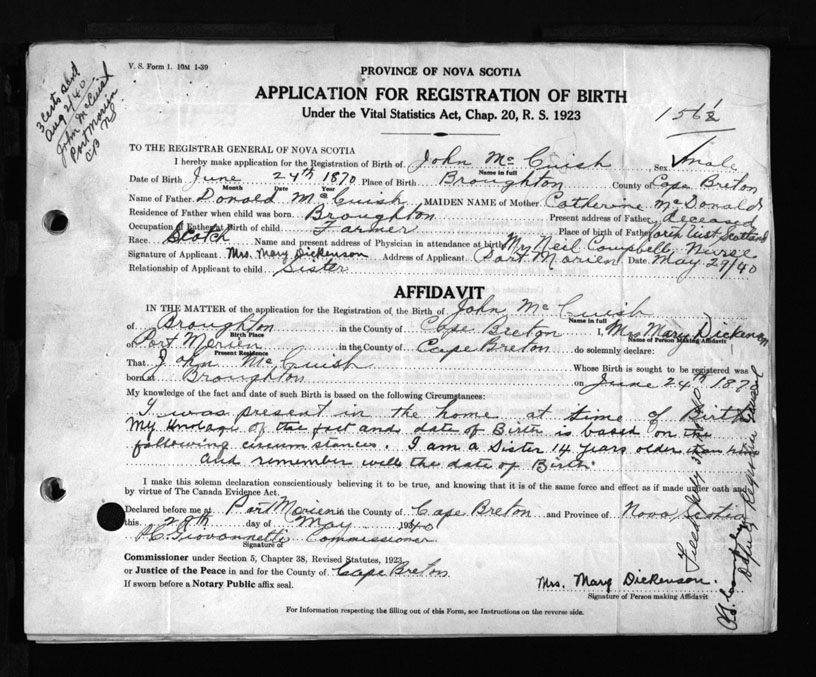 V. S. Form 1. 10M 1-39
PROVINCE OF NOVA SCOTIA
APPLICATION FOR REGISTRATION OF BIRTH
Under the Vital Statistics Act, Chap. 20, R. S. 1923
3 Certs sent
Aug 2/40
John McCuish
Port Morien
CB
NS
TO THE REGISTRAR GENERAL OF NOVA SCOTIA
I hereby make application for the Registration of Birth of John McCuish Sex Male
Name in full
Date of Birth June 24th 1870 Place of Birth Broughton County of Cape Breton
Month Date Year
Name of Father Donald McCuish MAIDEN NAME of Mother Catherine McDonald
Residence of Father when child was born Broughton Present address of Father deceased
Occupation of Father at Birth of child Farmer Place of birth of Father North Uist Scotland
Race Scotch Name and present address of Physician in attendance at birth Neil Campbell, Nurse
Signature of Applicant Mrs. Mary Dickenson Address of Applicant Port Morien Date May 29/40
Relationship of Applicant to child Sister
AFFIDAVIT
IN THE MATTER of the application for the Registration of the Birth of John McCuish
Name in full
of Broughton in the County of Cape Breton I, Mrs Mary Dickenson
Birth Place Name of Person Making Affidavit
of Port Morien in the County of Cape Breton do solemnly declare:
Present Residence
That John McCuish Whose Birth is sought to be registered was
born at Broughton on June 24th 1870
My knowledge of the fact and date of such Birth is based on the following Circumstances:
I was present in the home at time of Birth
My knolage of the fact and date of Birth is based on the
following circumstances. I am a Sister 14 years older than him
and remember well the date of Birth.
I make this solemn declaration conscientiously believing it to be true, and knowing that it is of the same force and effect as if made under oath and
by virtue of The Canada Evidence Act.
Declared before me at Port Morien in the County of Cape Breton and Province of Nova Scotia
this 29th day of May 1940
Giovannetti Commissioner
Signature of
Commissioner under Section 5, Chapter 38, Revised Statutes, 1923
or Justice of the Peace in and for the County of Cape Breton
If sworn before a Notary Public affix seal.
Mrs. Mary Dickenson.
Signature of Person making Affidavit
Deputy Registrar General
For Information respecting the filling out of this Form, see Instructions on the reverse side.